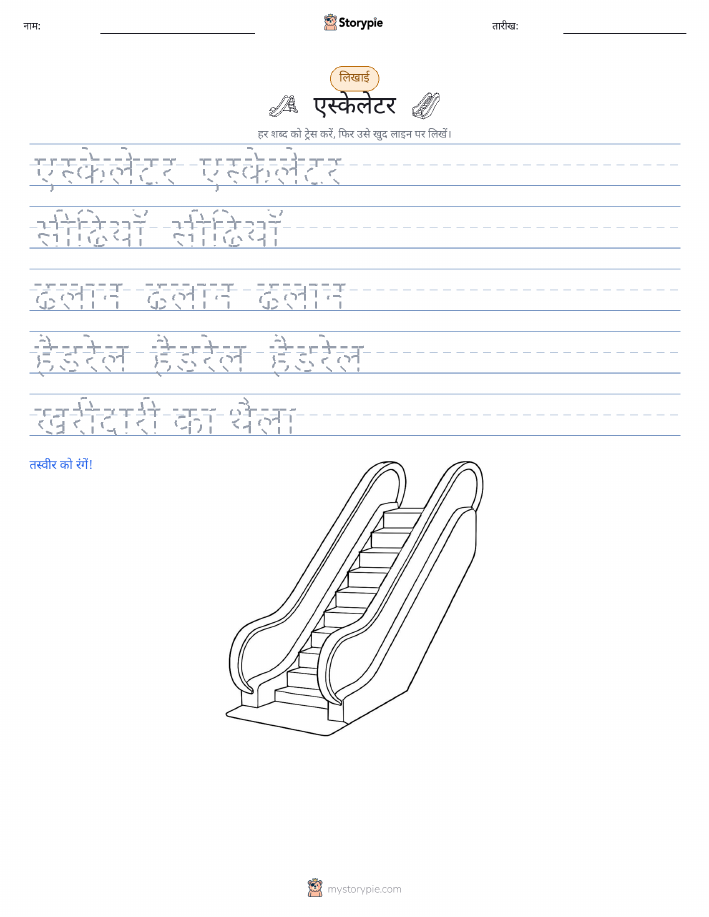 नाम:
Storypie
तारीख:
लिखाई
एस्केलेटर
हर शब्द को ट्रेस करें, फिर उसे खुद लाइन पर लिखें।
एस्केलेटर एस्केलेटर
सीढ़ियाँ सीढ़ियाँ
ढलान ढलान ढलान
हैंडरेल हैंडरेल हैंडरेल
खरीदारी का थैला
तस्वीर को रंगें!
mystorypie.com